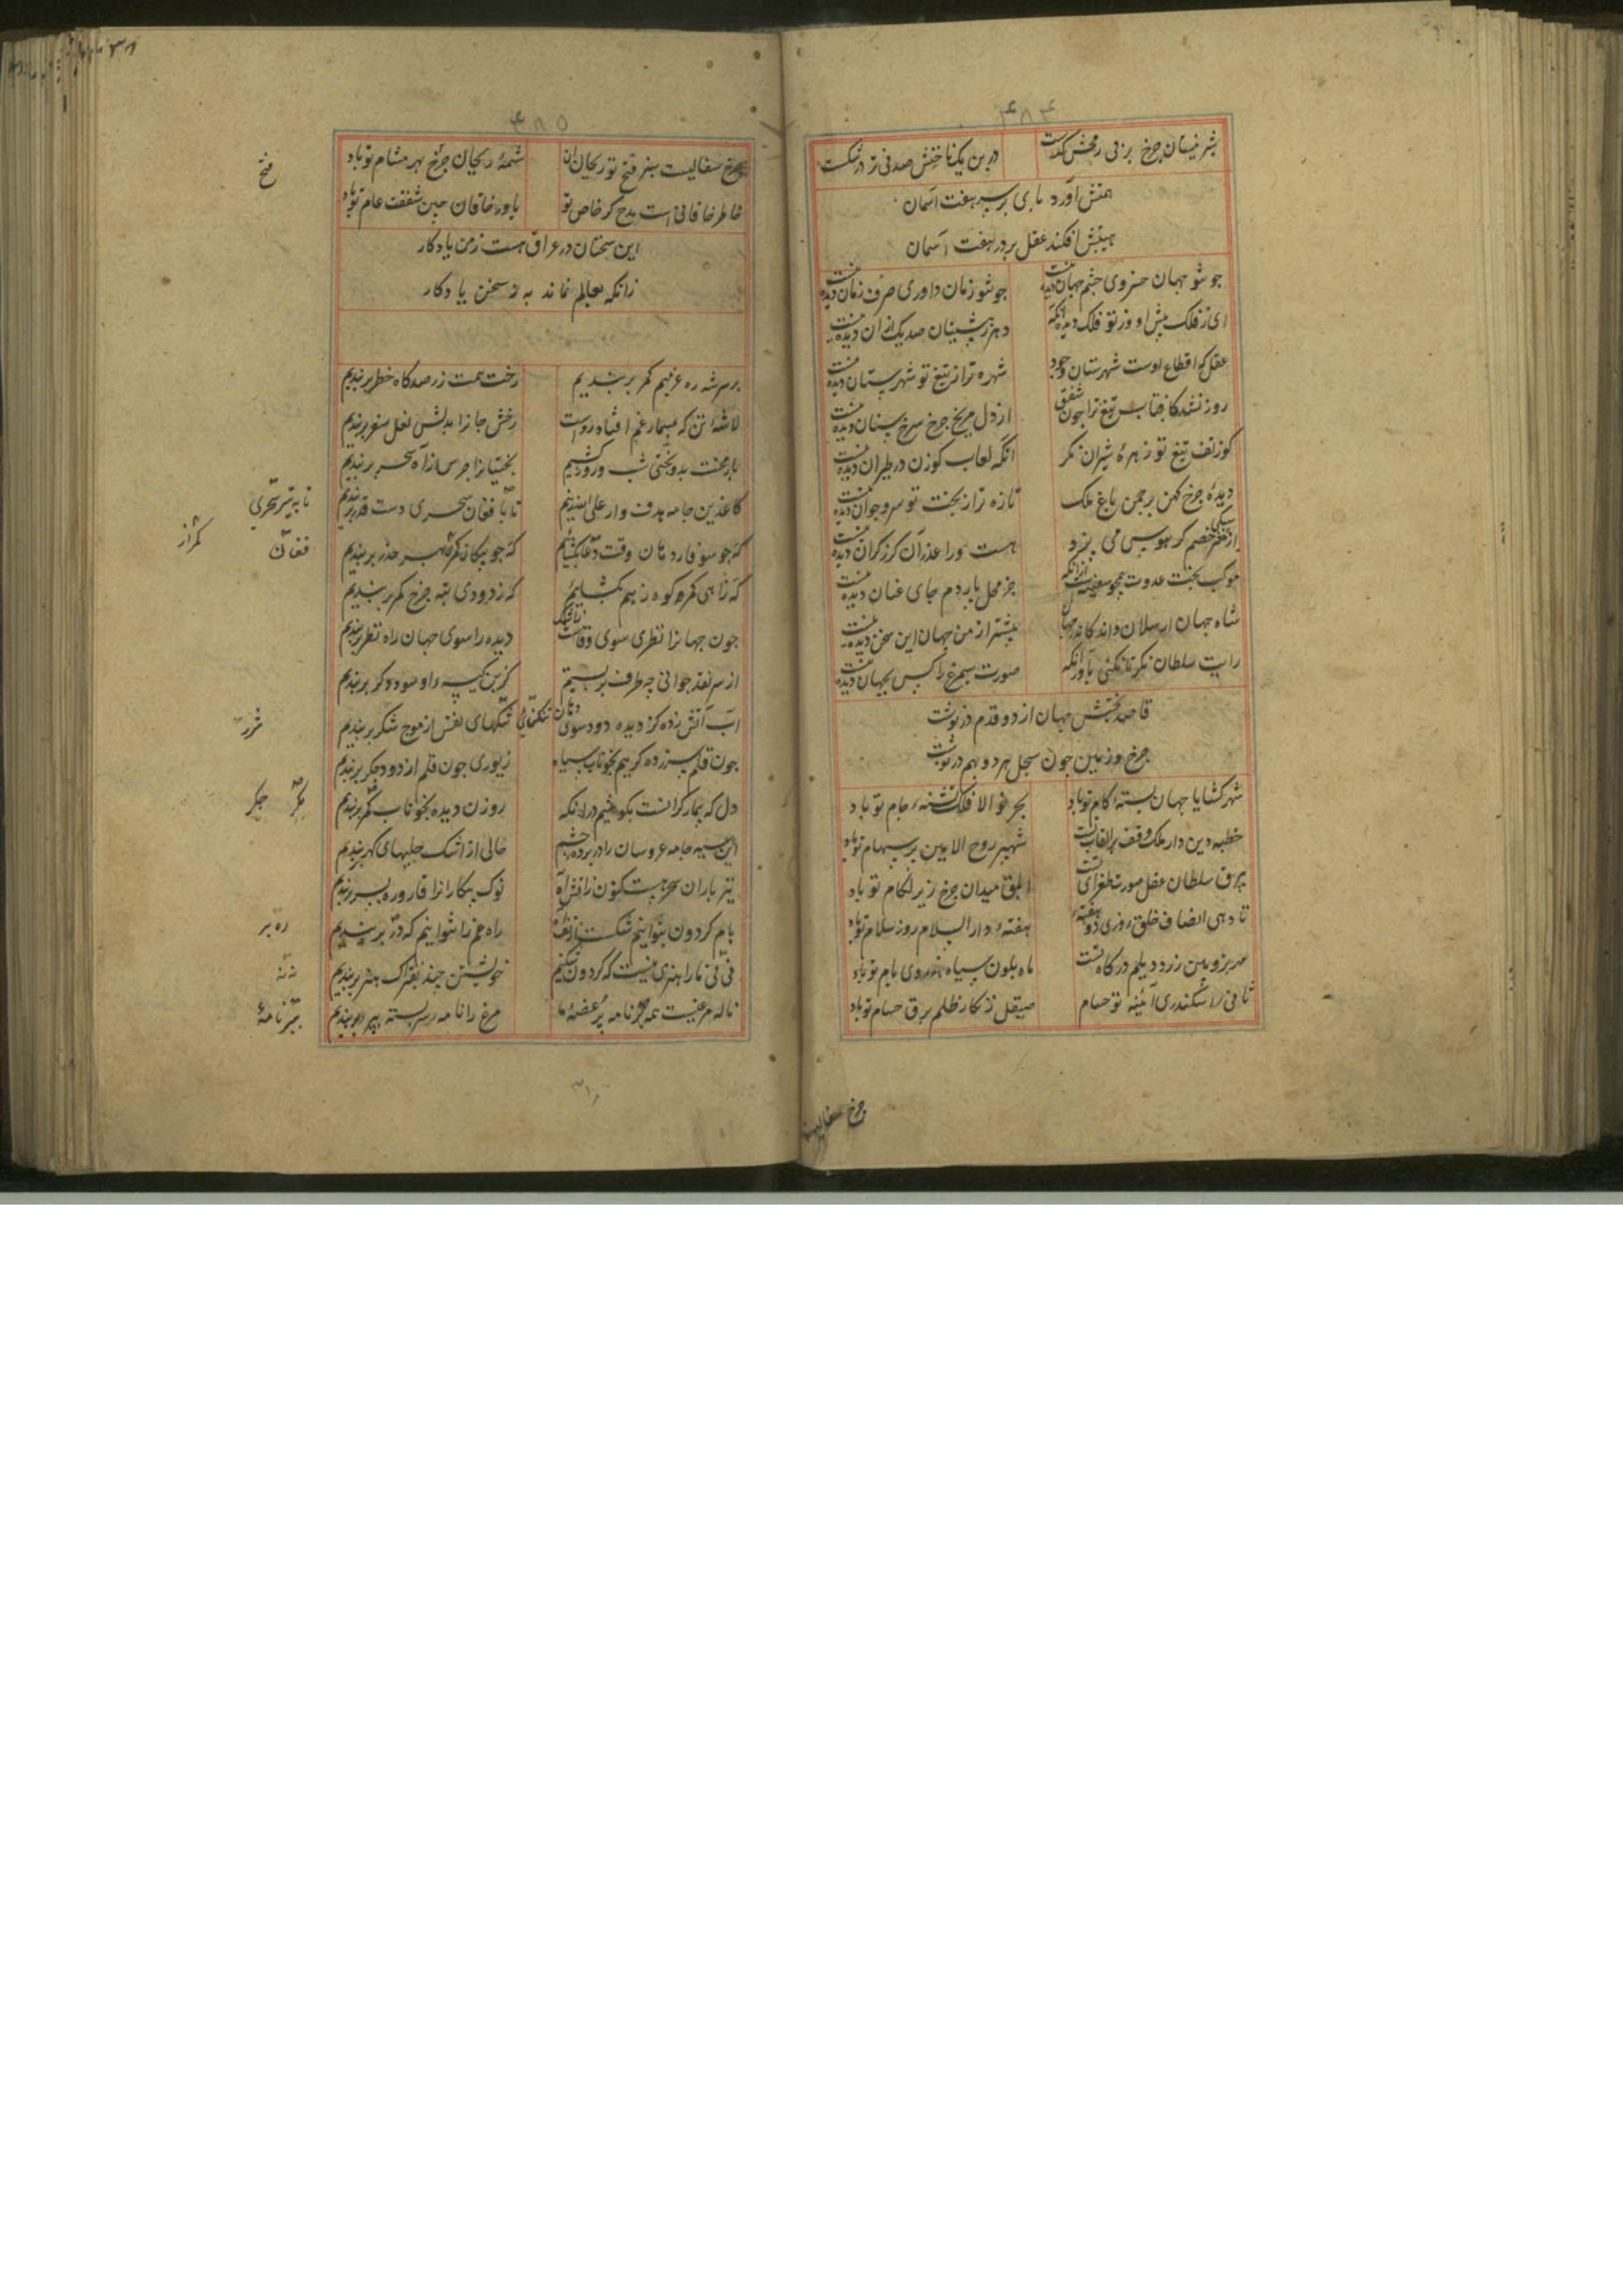 ۴۸۴
شیر نیستان چرخ بر نی رمحش گذشت در بن یک ناخنش صد نی تر در شکست
همتش آورد پای بر سر هفت آسمان
هیبتش افکند عقل بر در هفت آسمان
جو تو جهان خسروی چشم جهان دیده نیست جو تو زمان داوری صرف زمان دیده نیست
ای ز فلک بیش از و ز تو فلک دیده آنکه دهر ز پیشینیان صد یک از آن دیده نیست
عقل که اقطاع اوست شهرستان وجود شهره تر از تیغ تو شهرستان دیده نیست
روز نشد کافتاب تیغ ترا جون شفق از دل مریخ جرخ سرخ سنان دیده نیست
کوز تف تیغ تو زهرهٔ شیران نکر آنکه لعاب کوزن در طیران دیده نیست
دیدهٔ جرخ کهن بر جمن باغ ملک تازه تر از بخت تو سرو جوان دیده نیست
از مغز خصم کر هوسی می پزد هست ورا عذر آن کرز کران دیده نیست
موکب بخت عدوت از آنکه جز محل پاردم جای عنان دیده نیست
شاه جهان ارسلان داند کاندر جهان بیشتر از من جهان این سخن دیده نیست
رایت سلطان نکر تا نکنی باور آنکه صورت سیمرغ را کس بجهان دیده نیست
قاصد بختش جهان از دو قدم در نوشت
جرخ و زمین جون سجل هر دو بهم در نوشت
شهر کشایا جهان بستهٔ کام تو باد بحر نوالا فلک تشنهٔ جام تو باد
خطبه دین دار ملک وقف بر القاب تست شهپر روح الامین پر سهام تو باد
بیرق سلطان عقل صورت طغرای تست ابلق میدان چرخ زیر لکام تو باد
تا دهی انصاف خلق روزی دو هفتهٔ دار السلام روز سلام تو باد
ماه بلون سیاه هندوی بام تو باد
ثانی اسکندری آئینه تو حسام صیقل زنکار ظلم برق حسام تو باد
چرخ سفالیست
۴۸۵
چرخ سفالیست سبز فتح تو ریحان آن شمهٔ ریحان چرخ بهر مشام تو باد
خاطر خاقانی است مدح کر خاص تو یاور خاقان مبین شفقت عام تو باد
فتح
این سخنان در عراق هست ز من یادکار
زانکه بعالم نماند به ز سخن یادکار
بر سر شه ره عجزیم کمر بر بندیم رخت همت ز رصدکاه خطر بر بندیم
لاشهٔ تن که بمسمار غم افتاد رواست رخش جان را بدلش نعل سفر بر بندیم
بار محنت بدو بختی شب و روز کشیم بختیان را جرس از آه سحر بر بندیم
کاغذین جامه هدف وار علی الله زنیم تا بافغان سحری دست قدر بر بندیم
تا به تیر سحری
فغان
کمر از
که جو سوفار دهان وقت دعا بکشائیم که جو پیکان کمر بهر حذر بر بندیم
که ز آهی کمر کوه ز هم بکشائیم که ز دودی تتق چرخ کمر بر بندیم
جون جهان را نظری سوی وفا نیست ز اشک دیده را سوی جهان راه نظر بر بندیم
از سر نقد جوانی چه طرف بر بستیم کزین کیسه داو سود و دکر بر بندیم
آب آتش زده کز دیده دود سوی دهان تنکنای نفس از موج شکر بر بندیم
شرر
جون قلم سرزده کریم بخوناب سیاه زیوری جون قلم از دود جکر بر بندیم
دل که بیمار کرانست بکوشیم در آنکه روزن دیده بخوناب مکر بر بندیم
جکر
این سیه جامه عروسان را در پردهٔ چشم حالی از اشک حلیهای کهر بر بندیم
تیر باران سحر هست کنون ز آتش آه نوک پیکان را قاروره بسر بر بندیم
بام کردون بتوانیم شکست از تف راه غم را نتوانیم که در بر بندیم
نی نی ما را هنری نیست که کردون شکنیم خویشتن چند بفتراک هنر بر بندیم
ناله مرغیست بپر نامه بر غصهٔ ما مرغ را نامه سربسته بپر در بندیم
نه نه
ببر نامهٔ
۳۱۸